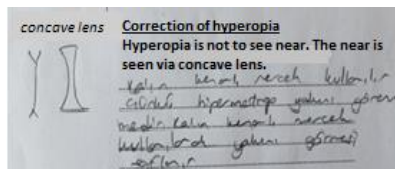 concave lens
Correction of hyperopia
Hyperopia is not to see near. The near is
seen via concave lens.
kalın kenarlı mercek kullanılır
çünkü hipermetrop yakını göremez
kalın kenarlı mercek
kullanılarak yakını görmesi
sağlanır